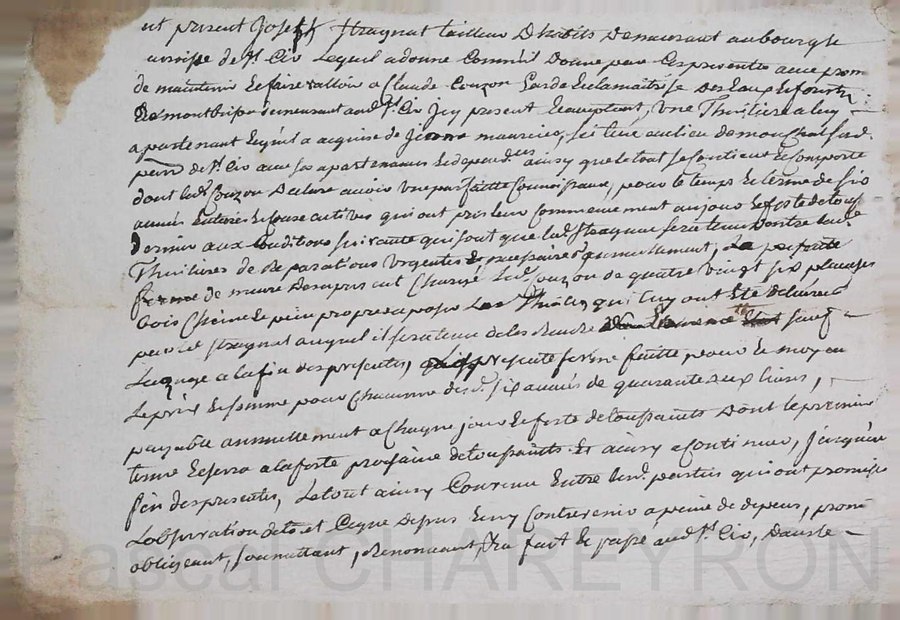 est present Joseph Stragnat tailleur D'habits Demeurant au bourg de
de St. Cir Lequel a donné Comme il Donne par Ces presentes avec prom
de maintenir Et faire valloir a Claude Couzon Garde En la maitrise des Eaux Et forets
De montbrison demeurant aud. St. Cir Icy present Et acceptant, Une Thuilliere a luy
apartenant Et qu'il a acquise de mauricer, scituée au lieu de
par. de St. Cir avec ses apartenances Et dependces. ainsy que le tout se contient Et Comporte
dont led. Couzon Declare avoir Une parfaitte Connoissance, pour le temps Et terme de six
années Entieres Et Consecutives qui ont pris leur Commencement au jour Et feste de touss.
Dernier aux Conditions suivante qui sont que led. Stragnat sera tenu D'entretenir lad.
Thuilliere de Reparations Urgentes Et necessaires annuellement, La presente
ferme demeure Desapris est Chargé led. Couzon de quatre vingt six planches
bois Chêne Et pein propres a poser Les Thuiles, qui luy ont Eté delivrées
par led. Stragnat auquel il sera tenu de les Rendre sauf
La usage a la fin des presentes, presente ferme faitte pour Et moyen
Le prix Et somme pour Chacune desd. six années de quarante six livres,
payable annuellement a Chaque jour Et feste de toussaints Dont le premier
terme Echerra a la feste prochaine de toussaints Et ainsy a Continuer, Jusqu'au
fin des presentes, Le tout ainsy Convenu Entre lesd. parties qui ont promis
L'observation de tout Ce que Dessus Et n'y Contrevenir a peine de depens, prom
obligeant, soumettant, Renonceant, &a fait Et passé aud. St. Cir, Dans le
Pascal CHAREYRON